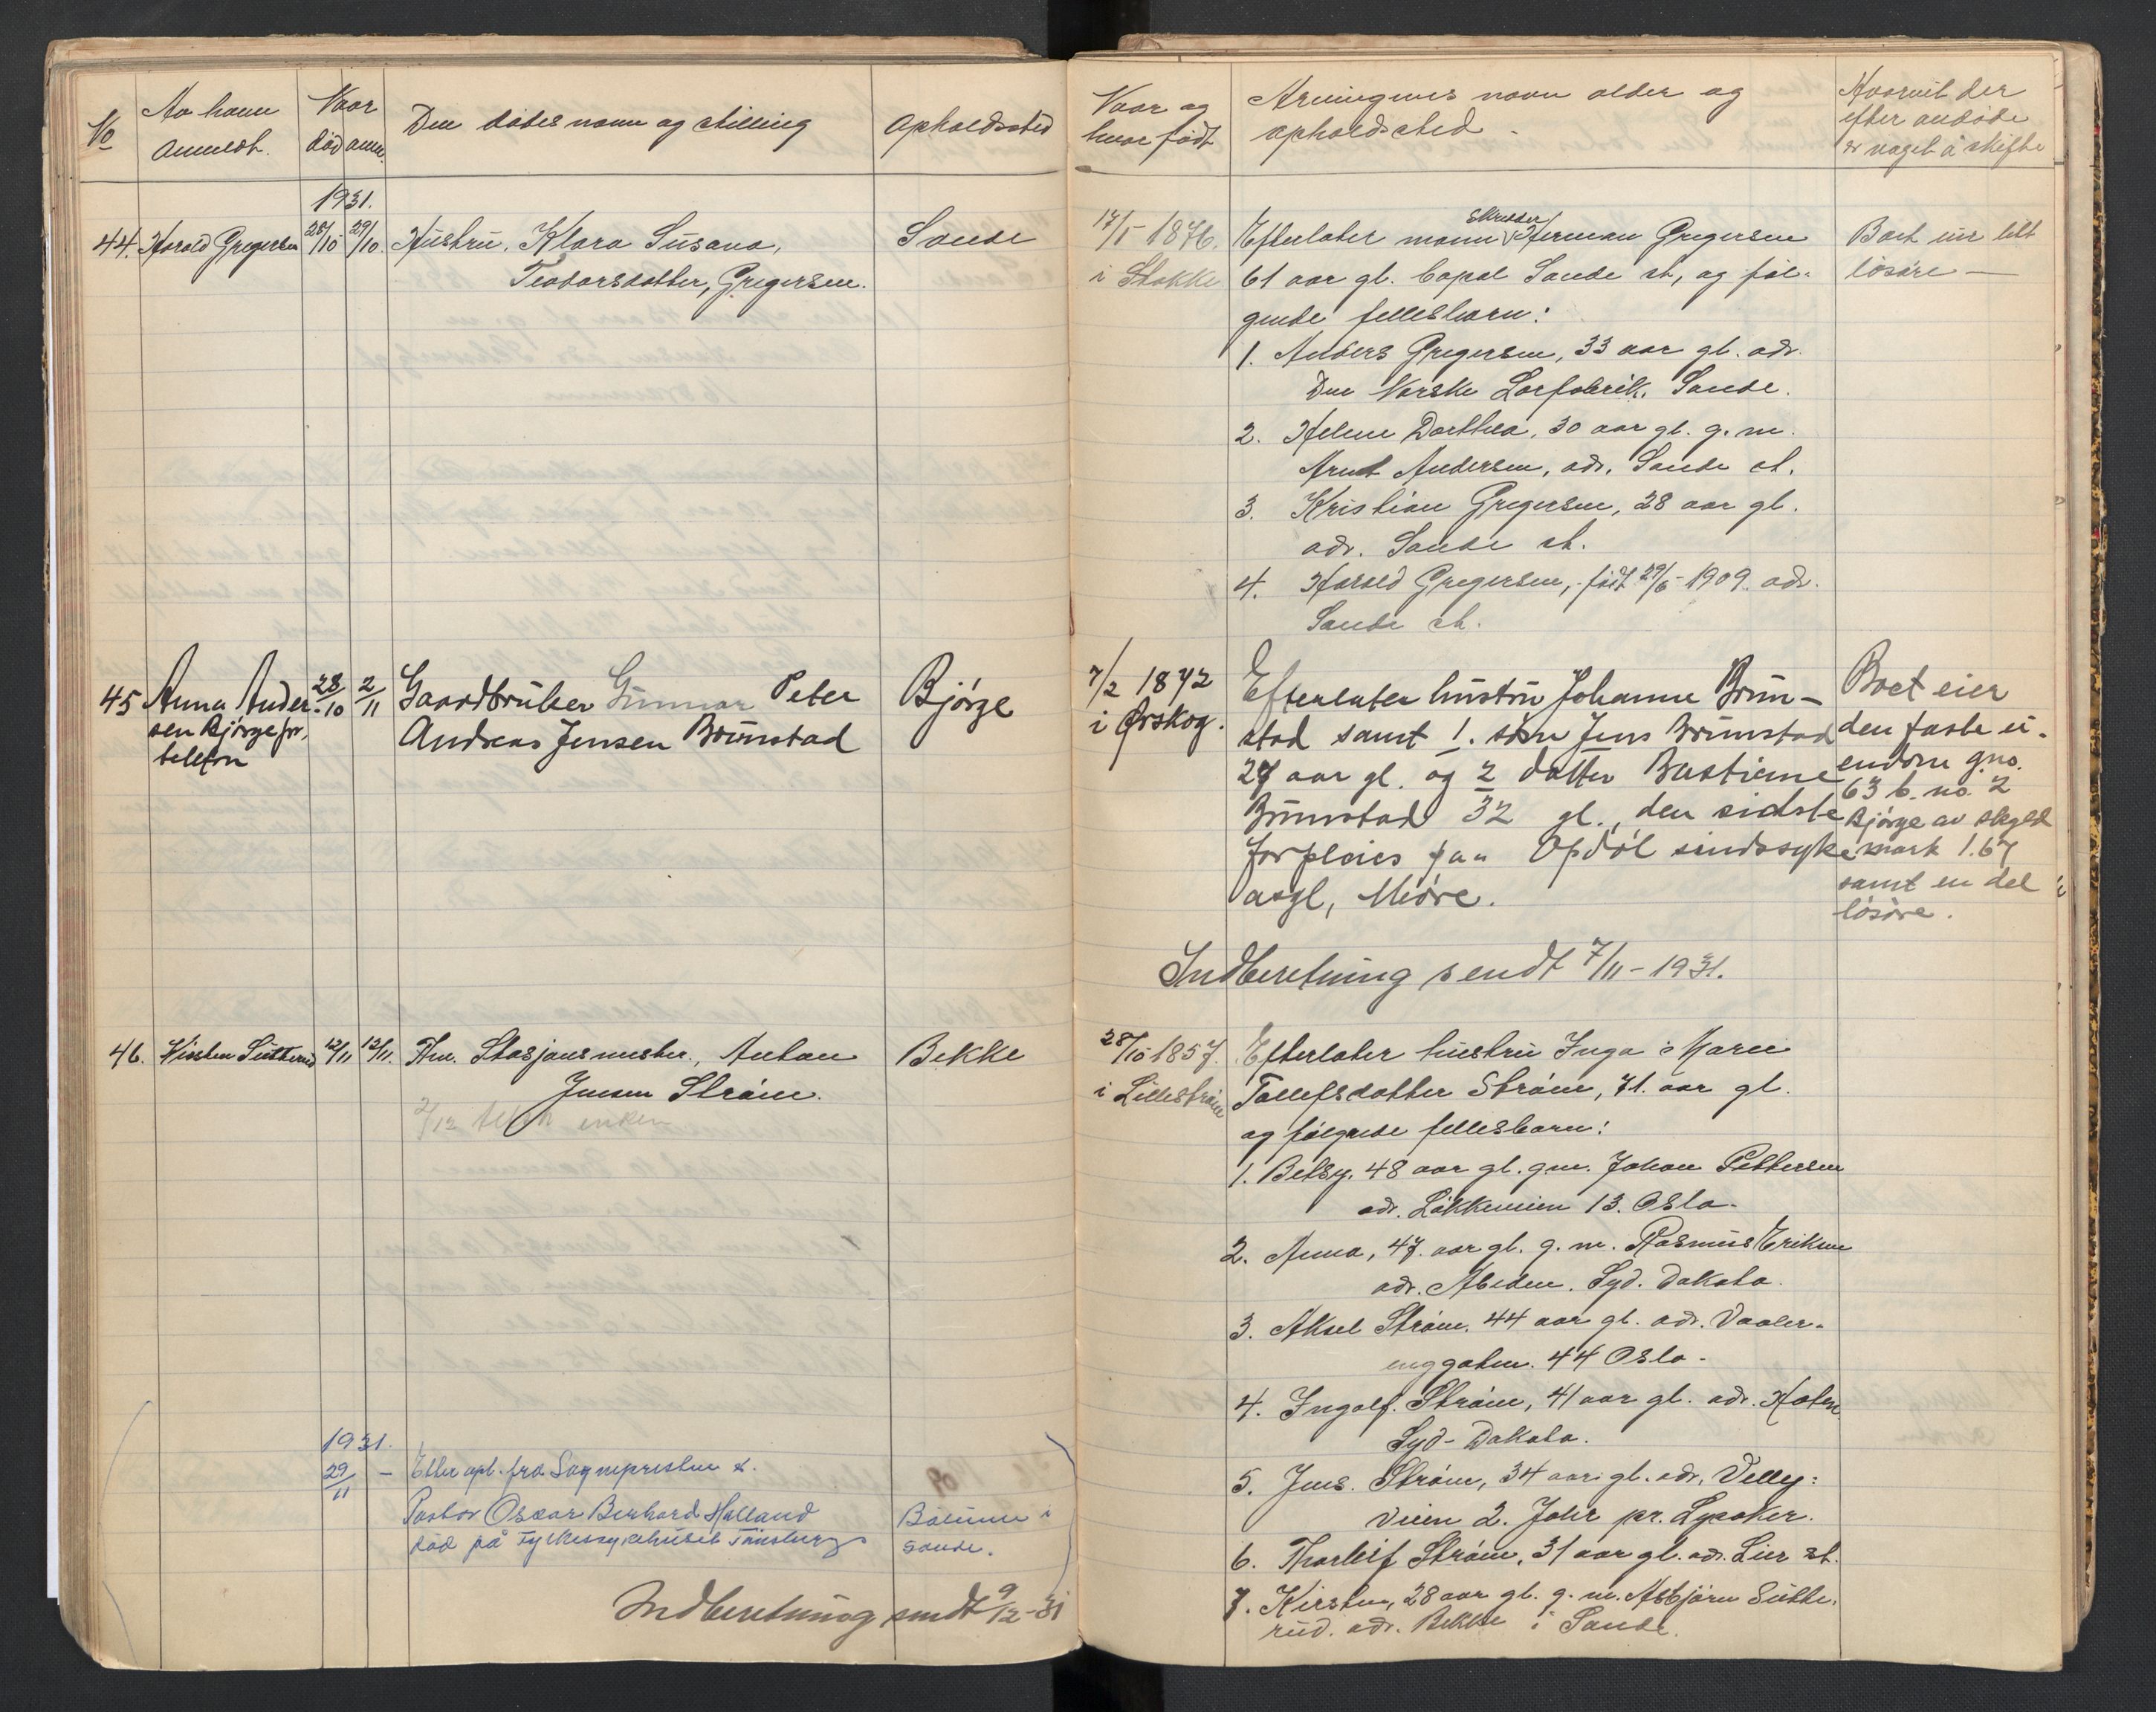 No
Av hvem
Anmeldt.
Naar
död anm.
Den dødes navn og stilling
Opholdssted
1931.
44. Harald Gregersen 28/10 29/10. Hustru, Klara Susana, Sande
Teodorsdatter, Gregersen.
45 Anna Ander- 28/10 2/11 Gaardbruker Gunnar Peter Bjørge
sen Bjørge pr. Andreas Jensen Brunstad
telefon
46. Kirsten Sutterud 12/11 12/11. Fhv. Stasjonsmester, Anton Bekke
Jensen Strøm.
2/12 enken
1931.
29/11 – Etter opl. fra Sognepresten
Pastor Oscar Bernhard Halland
død på Fylkessykehuset Tönsberg
i
Sande.
Indberetning sendt 9/12-31
Naar og
hvor født
Arvingenes navn alder og
opholdssted
Hvorvit der
efter avdøde
er noget å skifte
17/5 1876.
i Stokke
Efterlater mann Skredder Herman Gregersen
61 aar gl. bopel Sande st, og føl-
gende fellesbarn:
1. Anders Gregersen, 33 aar gl. adr.
Den Norske Sande.
2. Helene Dorthea, 30 aar gl. g. m.
Arnt Andersen, adr. Sande st.
3. Kristian Gregersen, 28 aar gl.
adr. Sande st.
4. Harald Gregersen, født 29/6-1909. adr.
Sande st.
Boet eier litt
løsøre –
7/2 1872
i Ørskog.
Efterlater hustru Johanne Brun-
stad samt 1. søn Jens Brunstad
27 aar gl. og 2 datter Bastiane
Brunstad 32 gl., den sidste
forpleies paa Opdøl sindssyke
asyl, Møre.
Boet eier
den faste ei-
endom gno.
63 b. no. 2
Bjørge av skyld
mark 1.67
samt en del
løsøre.
Indberetning sendt 7/11-1931.
28/10 1857.
i Lillestrøm
Efterlater hustru Inga Marie
Tollefsdatter Strøm, 71. aar gl.
og følgende fellesbarn:
1. Betsy. 48 aar gl. gm. Johan Pettersen
adr. Løkkeveien 13. Oslo.
2. Anna, 47. aar gl. g. m. Rasmus Eriksen
adr. Syd. Dakota.
3. Aksel Strøm. 44 aar gl. adr. Vaaler-
enggaten. 44 Oslo.
4. Ingolf. Strøm, 41 aar gl. adr.
Syd-Dakota.
5. Jens. Strøm, 34 aar gl. adr.
veien 2. pr. Lysaker.
6. Thorleif Strøm, 31 aar gl. adr. Lier st.
7. Kirsten, 28 aar gl. g. m. Asbjørn Sutte-
rud. adr. Bekke i Sande.